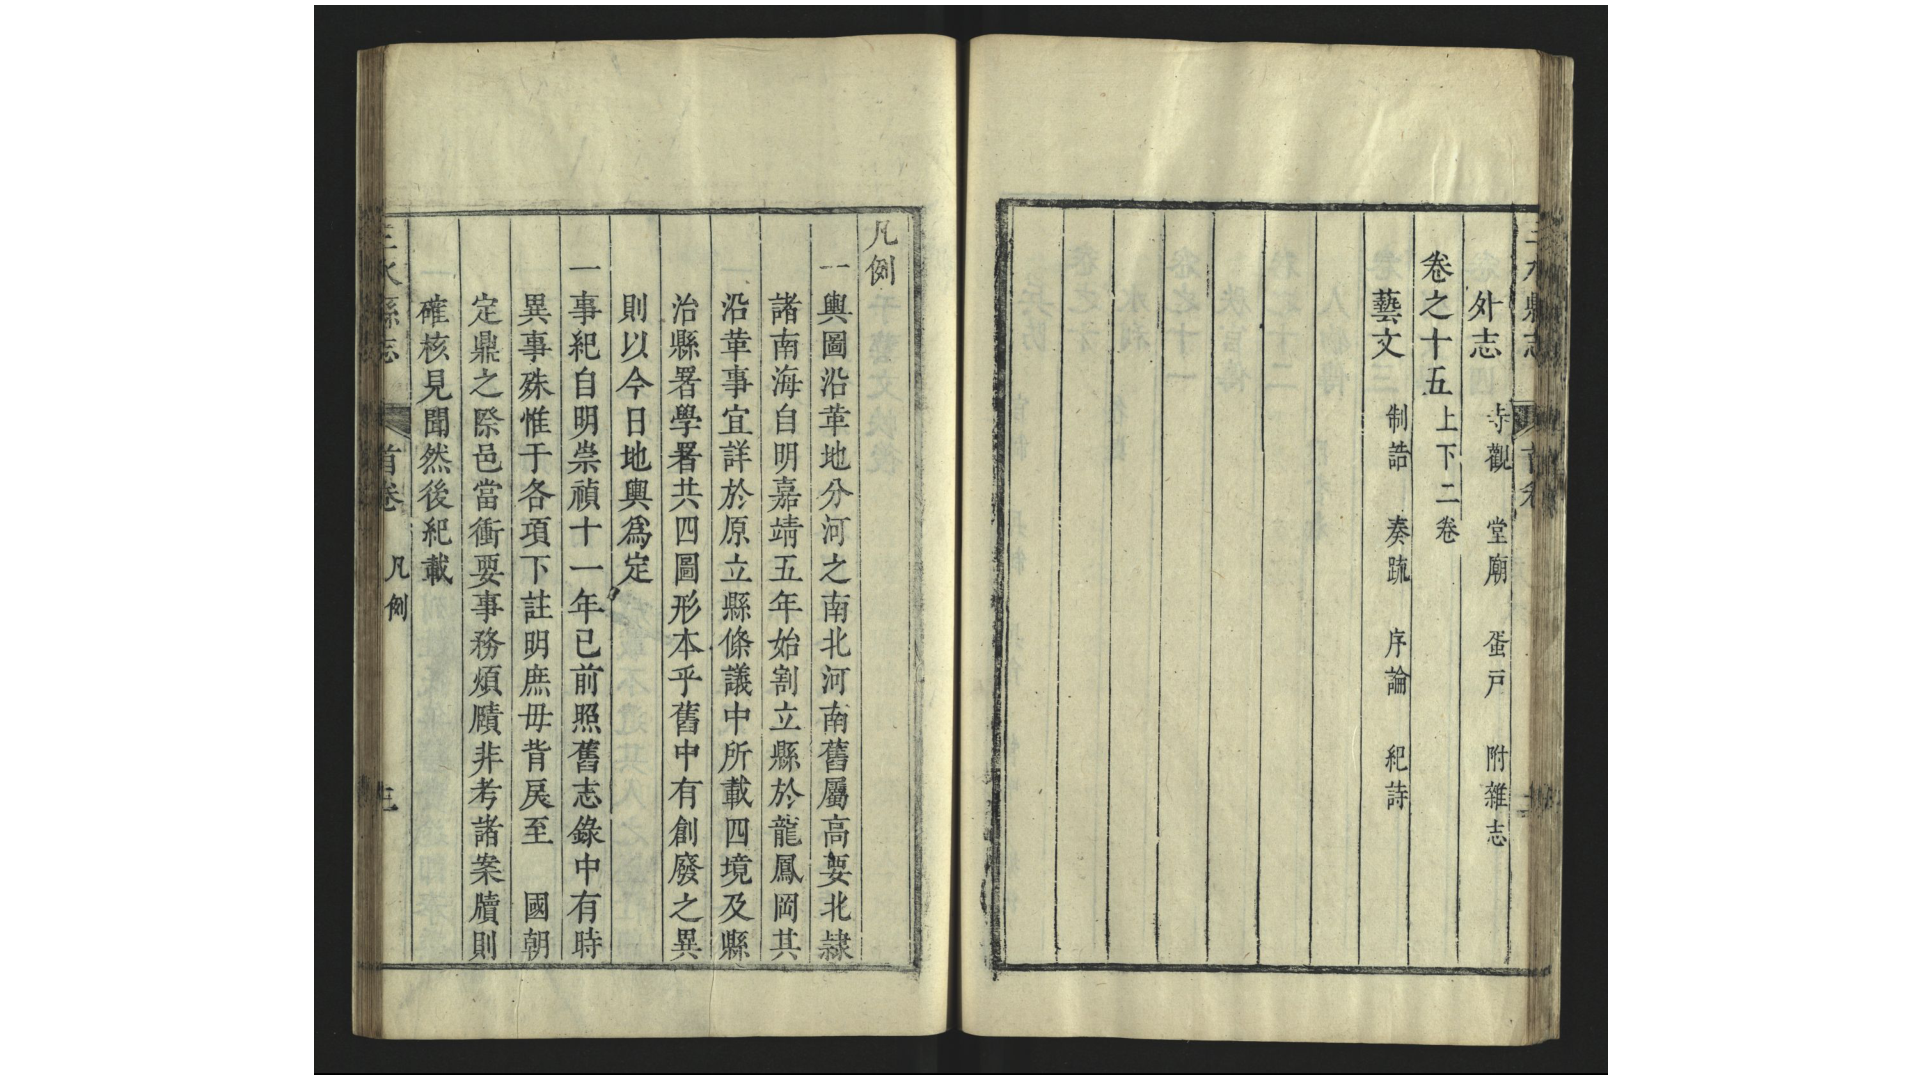 三水縣志 首卷
外志 寺觀 堂廟 蛋戸 附雜志
卷之十五 上下二卷
藝文 制誥 奏疏 序論 紀詩
凡例
一輿圖沿革地分河之南北河南舊屬高要北隷
諸南海自明嘉靖五年始割立縣於龍鳳岡其
沿革事宜詳於原立縣條議中所載四境及縣
治縣署學署共四圖形本乎舊中有創廢之異
則以今日地輿爲定
一事紀自明崇禎十一年已前照舊志錄中有時
異事殊惟于各項下註明庶毋背戾至 國朝
定鼎之際邑當衝要事務煩賾非考諸案牘則
確核見聞然後紀載
三水縣志 首卷 凡例 三